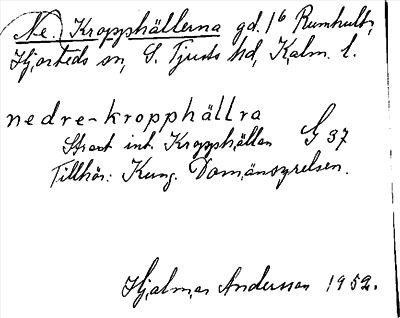 Ne. Kropphällerna gd. 1⁶ Rumhult,
Hjorteds sn, S. Tjusts hd, Kalm. l.
nedre-kropphällra
Strax int. Kropphällan G 37
Tillhör: Kung. Domänstyrelsen.
Hjalmar Andersson 1952.